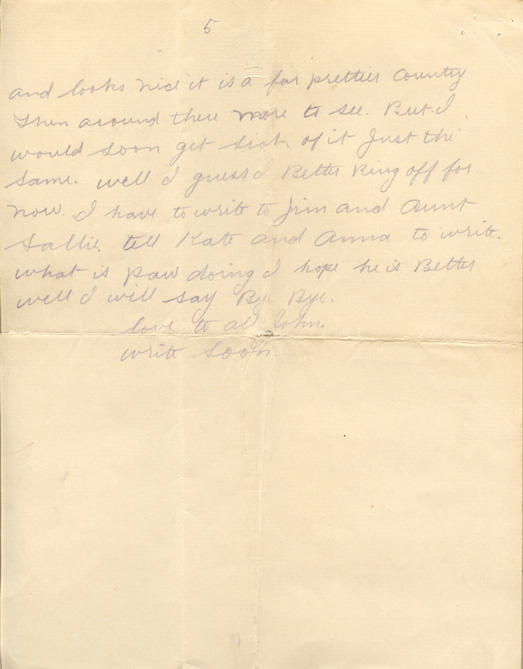 5
and looks nice it is a far prettier Country
Then around there more to see. But I
would soon get sick of it Just the
same. well I guess I Better Ring off for
now. I have to write to Jim and Aunt
Sallie. tell Kate and Anna to write.
what is paw doing I hope he is Better
well I will say By Bye.
love to all John.
write soon.